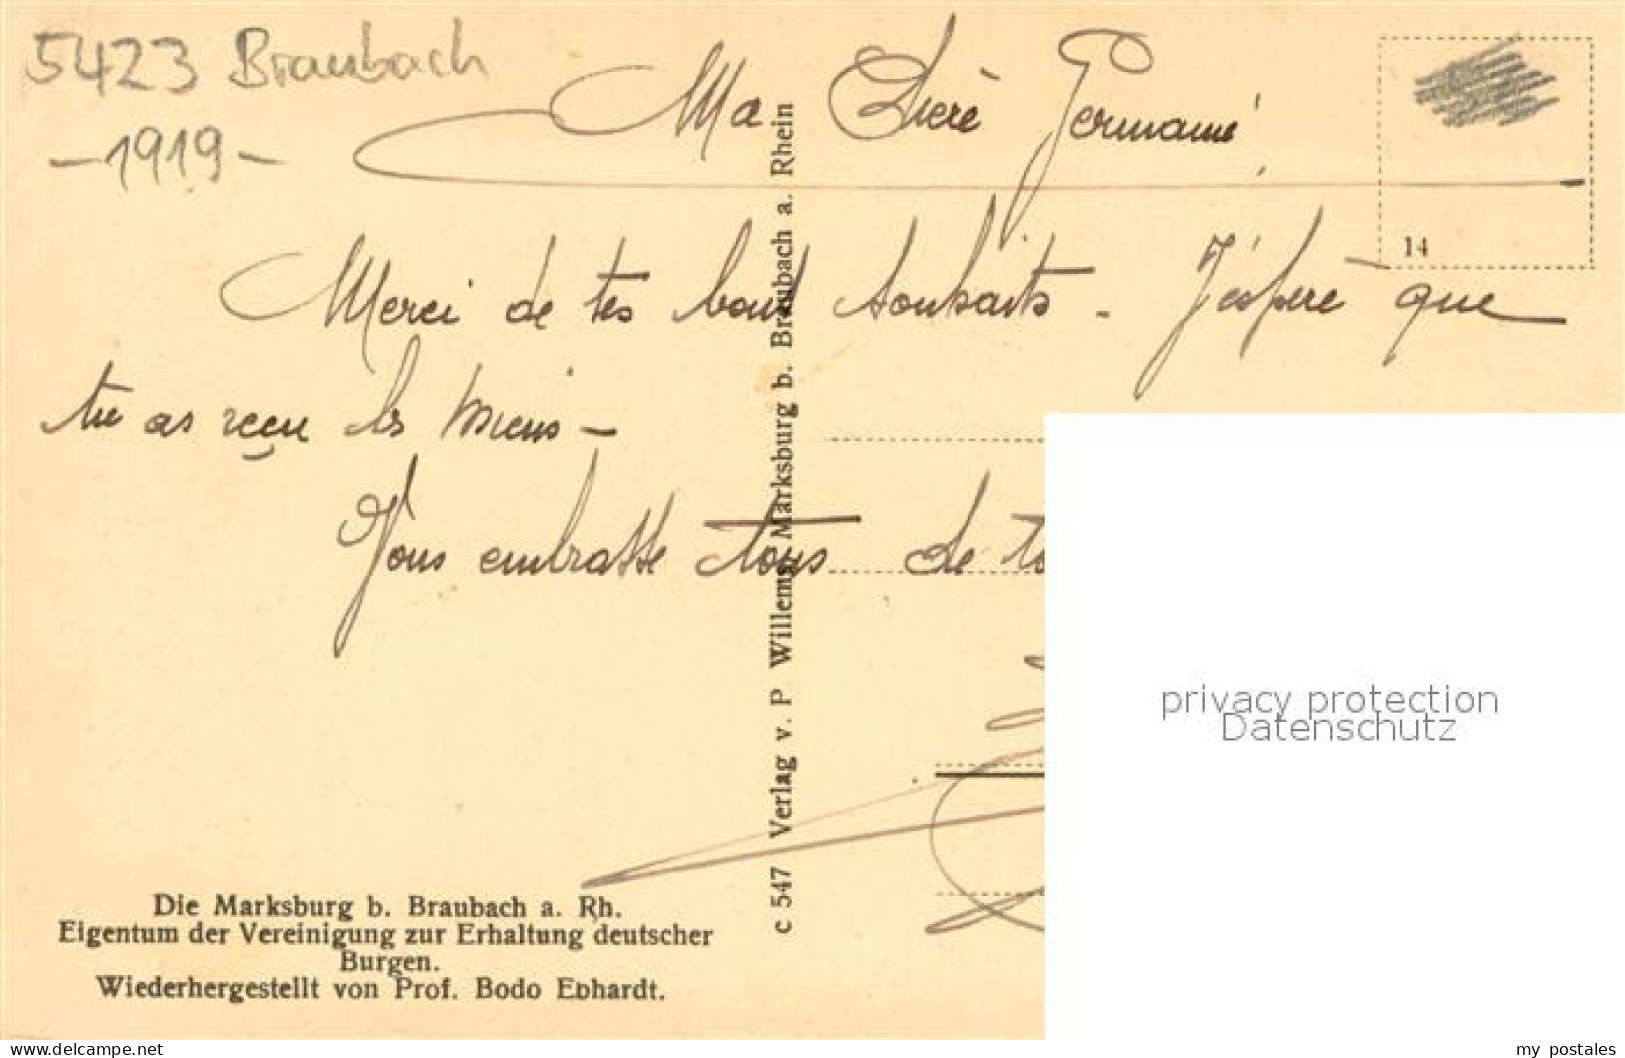 5423 Braubach
-1919-
Ma Chère Germaine,
14
Merci de tes bons souhaits - J'espère que
tu as reçu les miens -
Vous embrasse tous de
c 547 Verlag v. P Willems, Marksburg b. Braubach a. Rhein
privacy protection
Datenschutz
Die Marksburg b. Braubach a. Rh.
Eigentum der Vereinigung zur Erhaltung deutscher
Burgen.
Wiederhergestellt von Prof. Bodo Ebhardt.
www.delcampe.net/store/ansichtskartenversand_com
my_postales